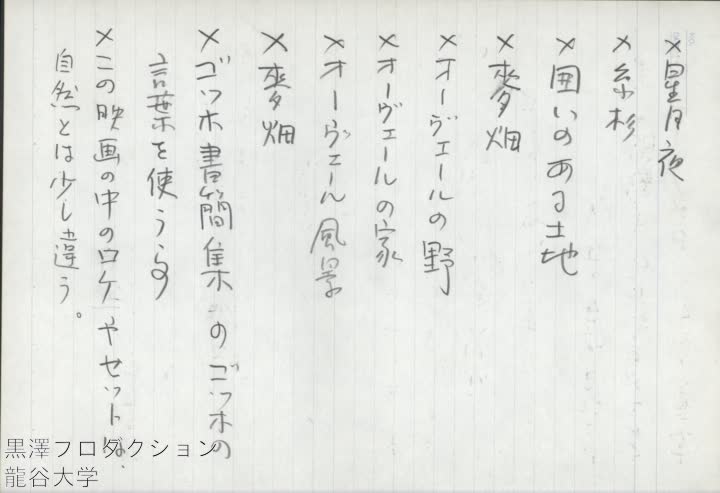 ×星月夜
×糸杉
×囲いのある土地
×麥畑
×オーヴェールの野
×オーヴェールの家
×オーヴェール風景
×麥畑
×ゴッホ書簡集のゴッホの
言葉を使う事
×この映画の中のロケやセットは、
自然とは少し違う。
黒澤プロダクション
龍谷大学